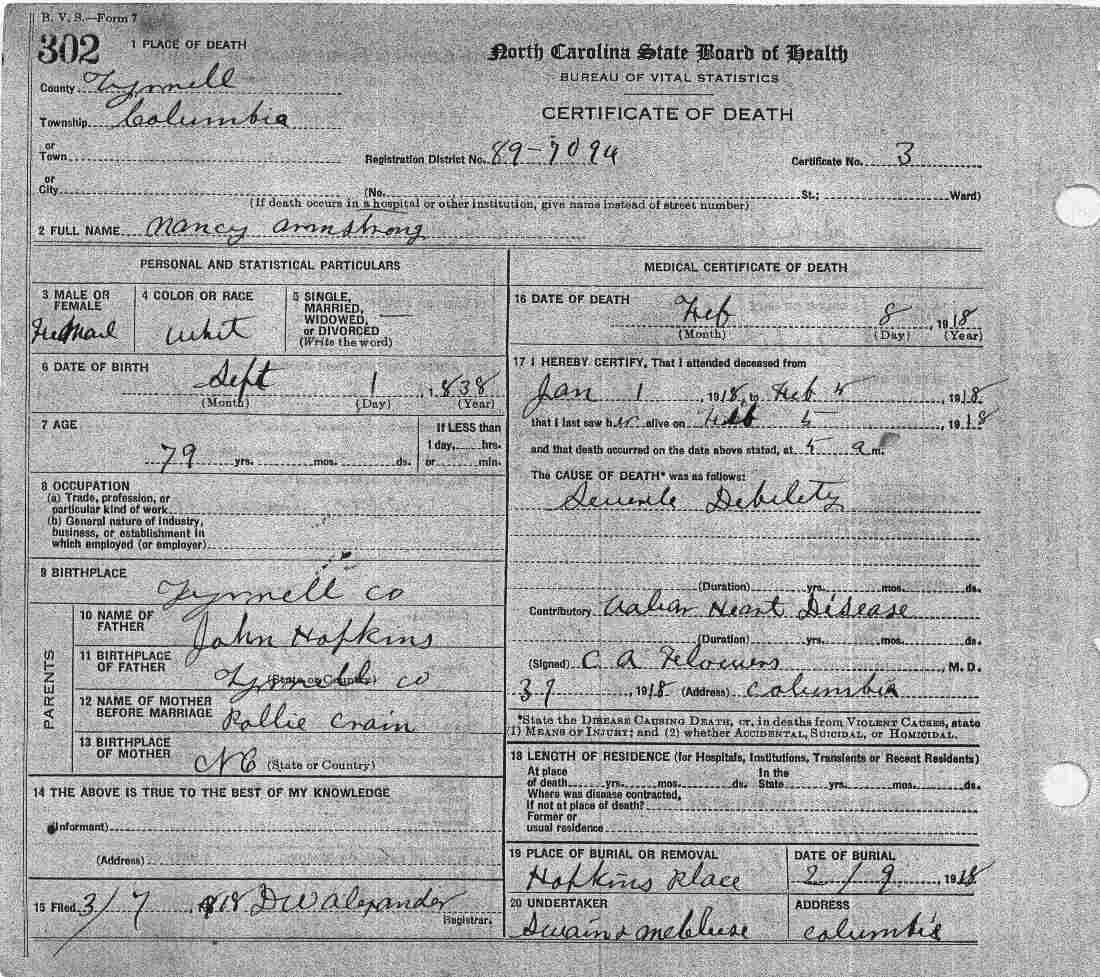 B. V. S.—Form 7
302
1 PLACE OF DEATH
North Carolina State Board of Health
BUREAU OF VITAL STATISTICS
CERTIFICATE OF DEATH
County Tyrrell
Township Columbia
or
Town
Registration District No. 89-7094
Certificate No. 3
or
City (No. St.; Ward)
(If death occurs in a hospital or other institution, give name instead of street number)
2 FULL NAME Nancy Armstrong
PERSONAL AND STATISTICAL PARTICULARS
3 MALE OR FEMALE
FeMail
4 COLOR OR RACE
Whit
5 SINGLE, MARRIED, WIDOWED, or DIVORCED
(Write the word)
6 DATE OF BIRTH
Sept 1, 1838
(Month) (Day) (Year)
7 AGE
79 yrs. mos. ds.
If LESS than
1 day, hrs.
or min.
8 OCCUPATION
(a) Trade, profession, or
particular kind of work
(b) General nature of industry,
business, or establishment in
which employed (or employer)
9 BIRTHPLACE
Tyrrell co
PARENTS
10 NAME OF FATHER
John Hopkins
11 BIRTHPLACE OF FATHER
(State or Country)
Tyrrell co
12 NAME OF MOTHER BEFORE MARRIAGE
Pollie Crain
13 BIRTHPLACE OF MOTHER
NC (State or Country)
14 THE ABOVE IS TRUE TO THE BEST OF MY KNOWLEDGE
(Informant)
(Address)
15 Filed 3/7, 1918 DW Alexander
Registrar.
MEDICAL CERTIFICATE OF DEATH
16 DATE OF DEATH
Feb 8, 1918
(Month) (Day) (Year)
17 I HEREBY CERTIFY, That I attended deceased from
Jan 1, 1918, to Feb 5 1918
that I last saw her alive on Feb 5, 1918
and that death occurred on the date above stated, at 5 a m.
The CAUSE OF DEATH* was as follows:
Debilety
(Duration) yrs. mos. ds.
Contributory Heart Disease
(Duration) yrs. mos. ds.
(Signed) C A, M. D.
3 7, 1918 (Address) Columbia
*State the DISEASE CAUSING DEATH, or, in deaths from VIOLENT CAUSES, state
(1) MEANS OF INJURY; and (2) whether ACCIDENTAL, SUICIDAL, or HOMICIDAL.
18 LENGTH OF RESIDENCE (for Hospitals, Institutions, Transients or Recent Residents)
At place
of death yrs. mos. ds.
In the
State yrs. mos. ds.
Where was disease contracted,
if not at place of death?
Former or
usual residence
19 PLACE OF BURIAL OR REMOVAL
Hopkins Place
DATE OF BURIAL
2/9, 1918
20 UNDERTAKER
Swain &
ADDRESS
Columbia